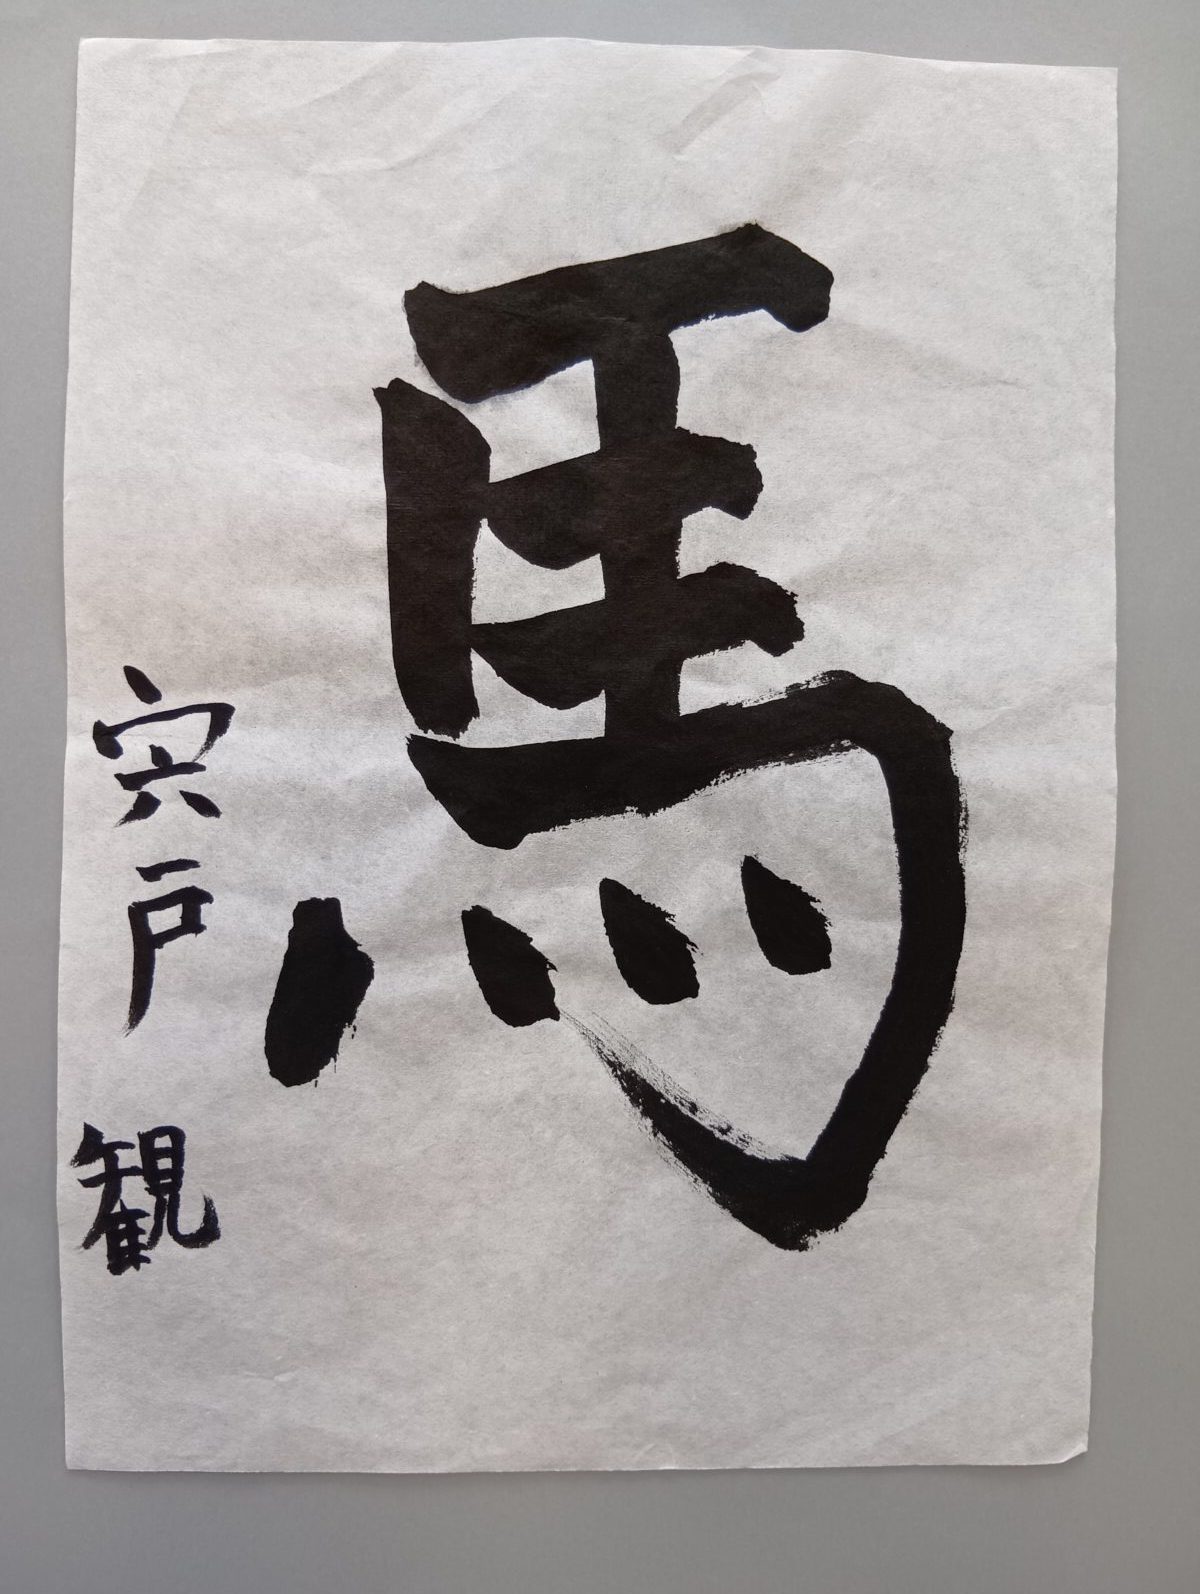 馬
宍戸 観